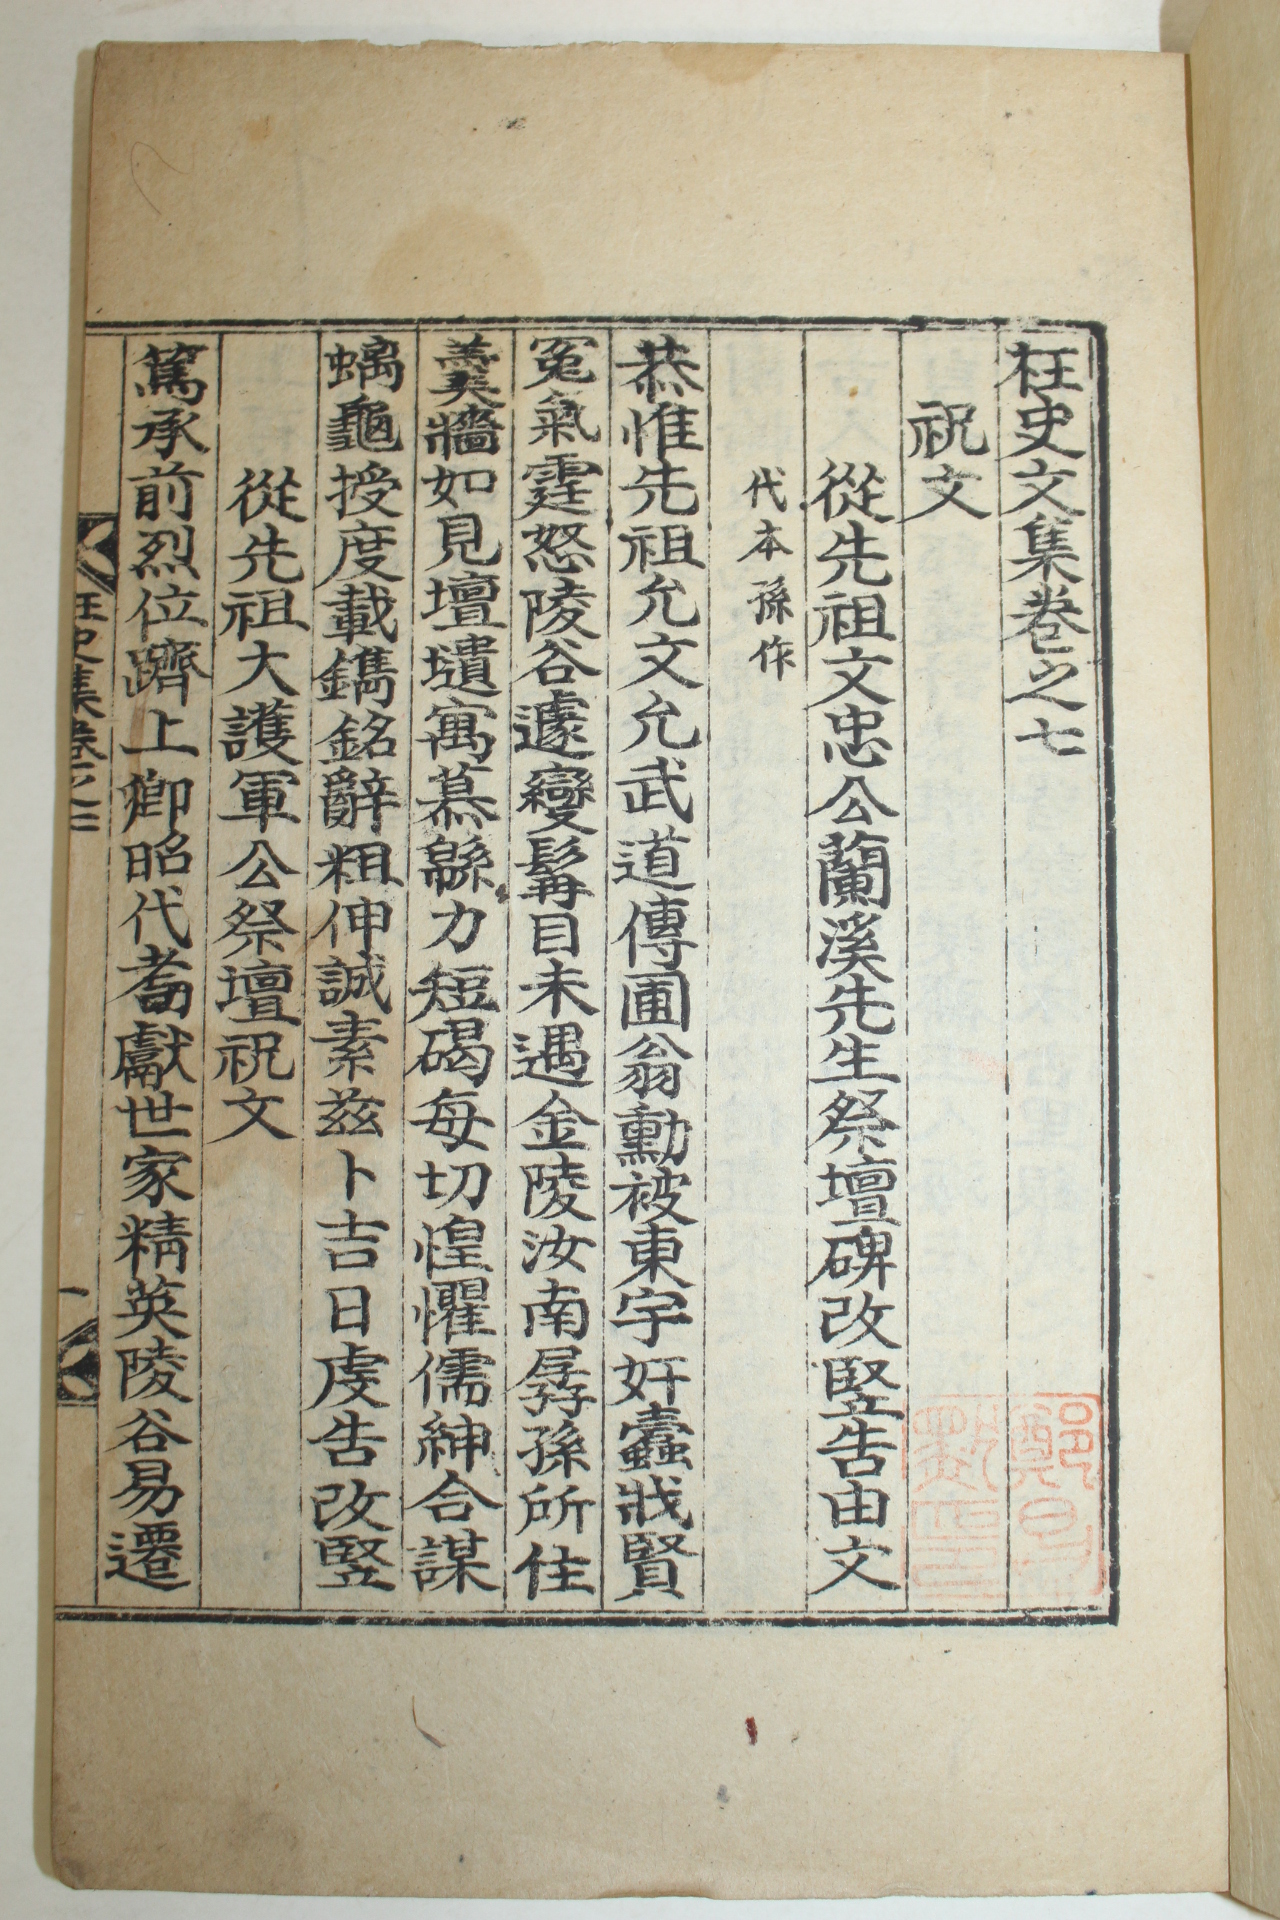 枉史文集卷之七
祝文
從先祖文忠公蘭溪先生祭壇碑改竪告由文
代本孫作
恭惟先祖允文允武道傳圃翁勳被東宇奸蠹戕賢
冤氣霆怒陵谷遽變髯目未遇金陵汝南孱孫所住
羹牆如見壇壝寓慕緜力短碣每切惶懼儒紳合謀
螭龜授度載鐫銘辭粗伸誠素玆卜吉日虔告改竪
從先祖大護軍公祭壇祝文
篤承前烈位躋上卿昭代耆獻世家精英陵谷易遷
枉史集卷之七
一